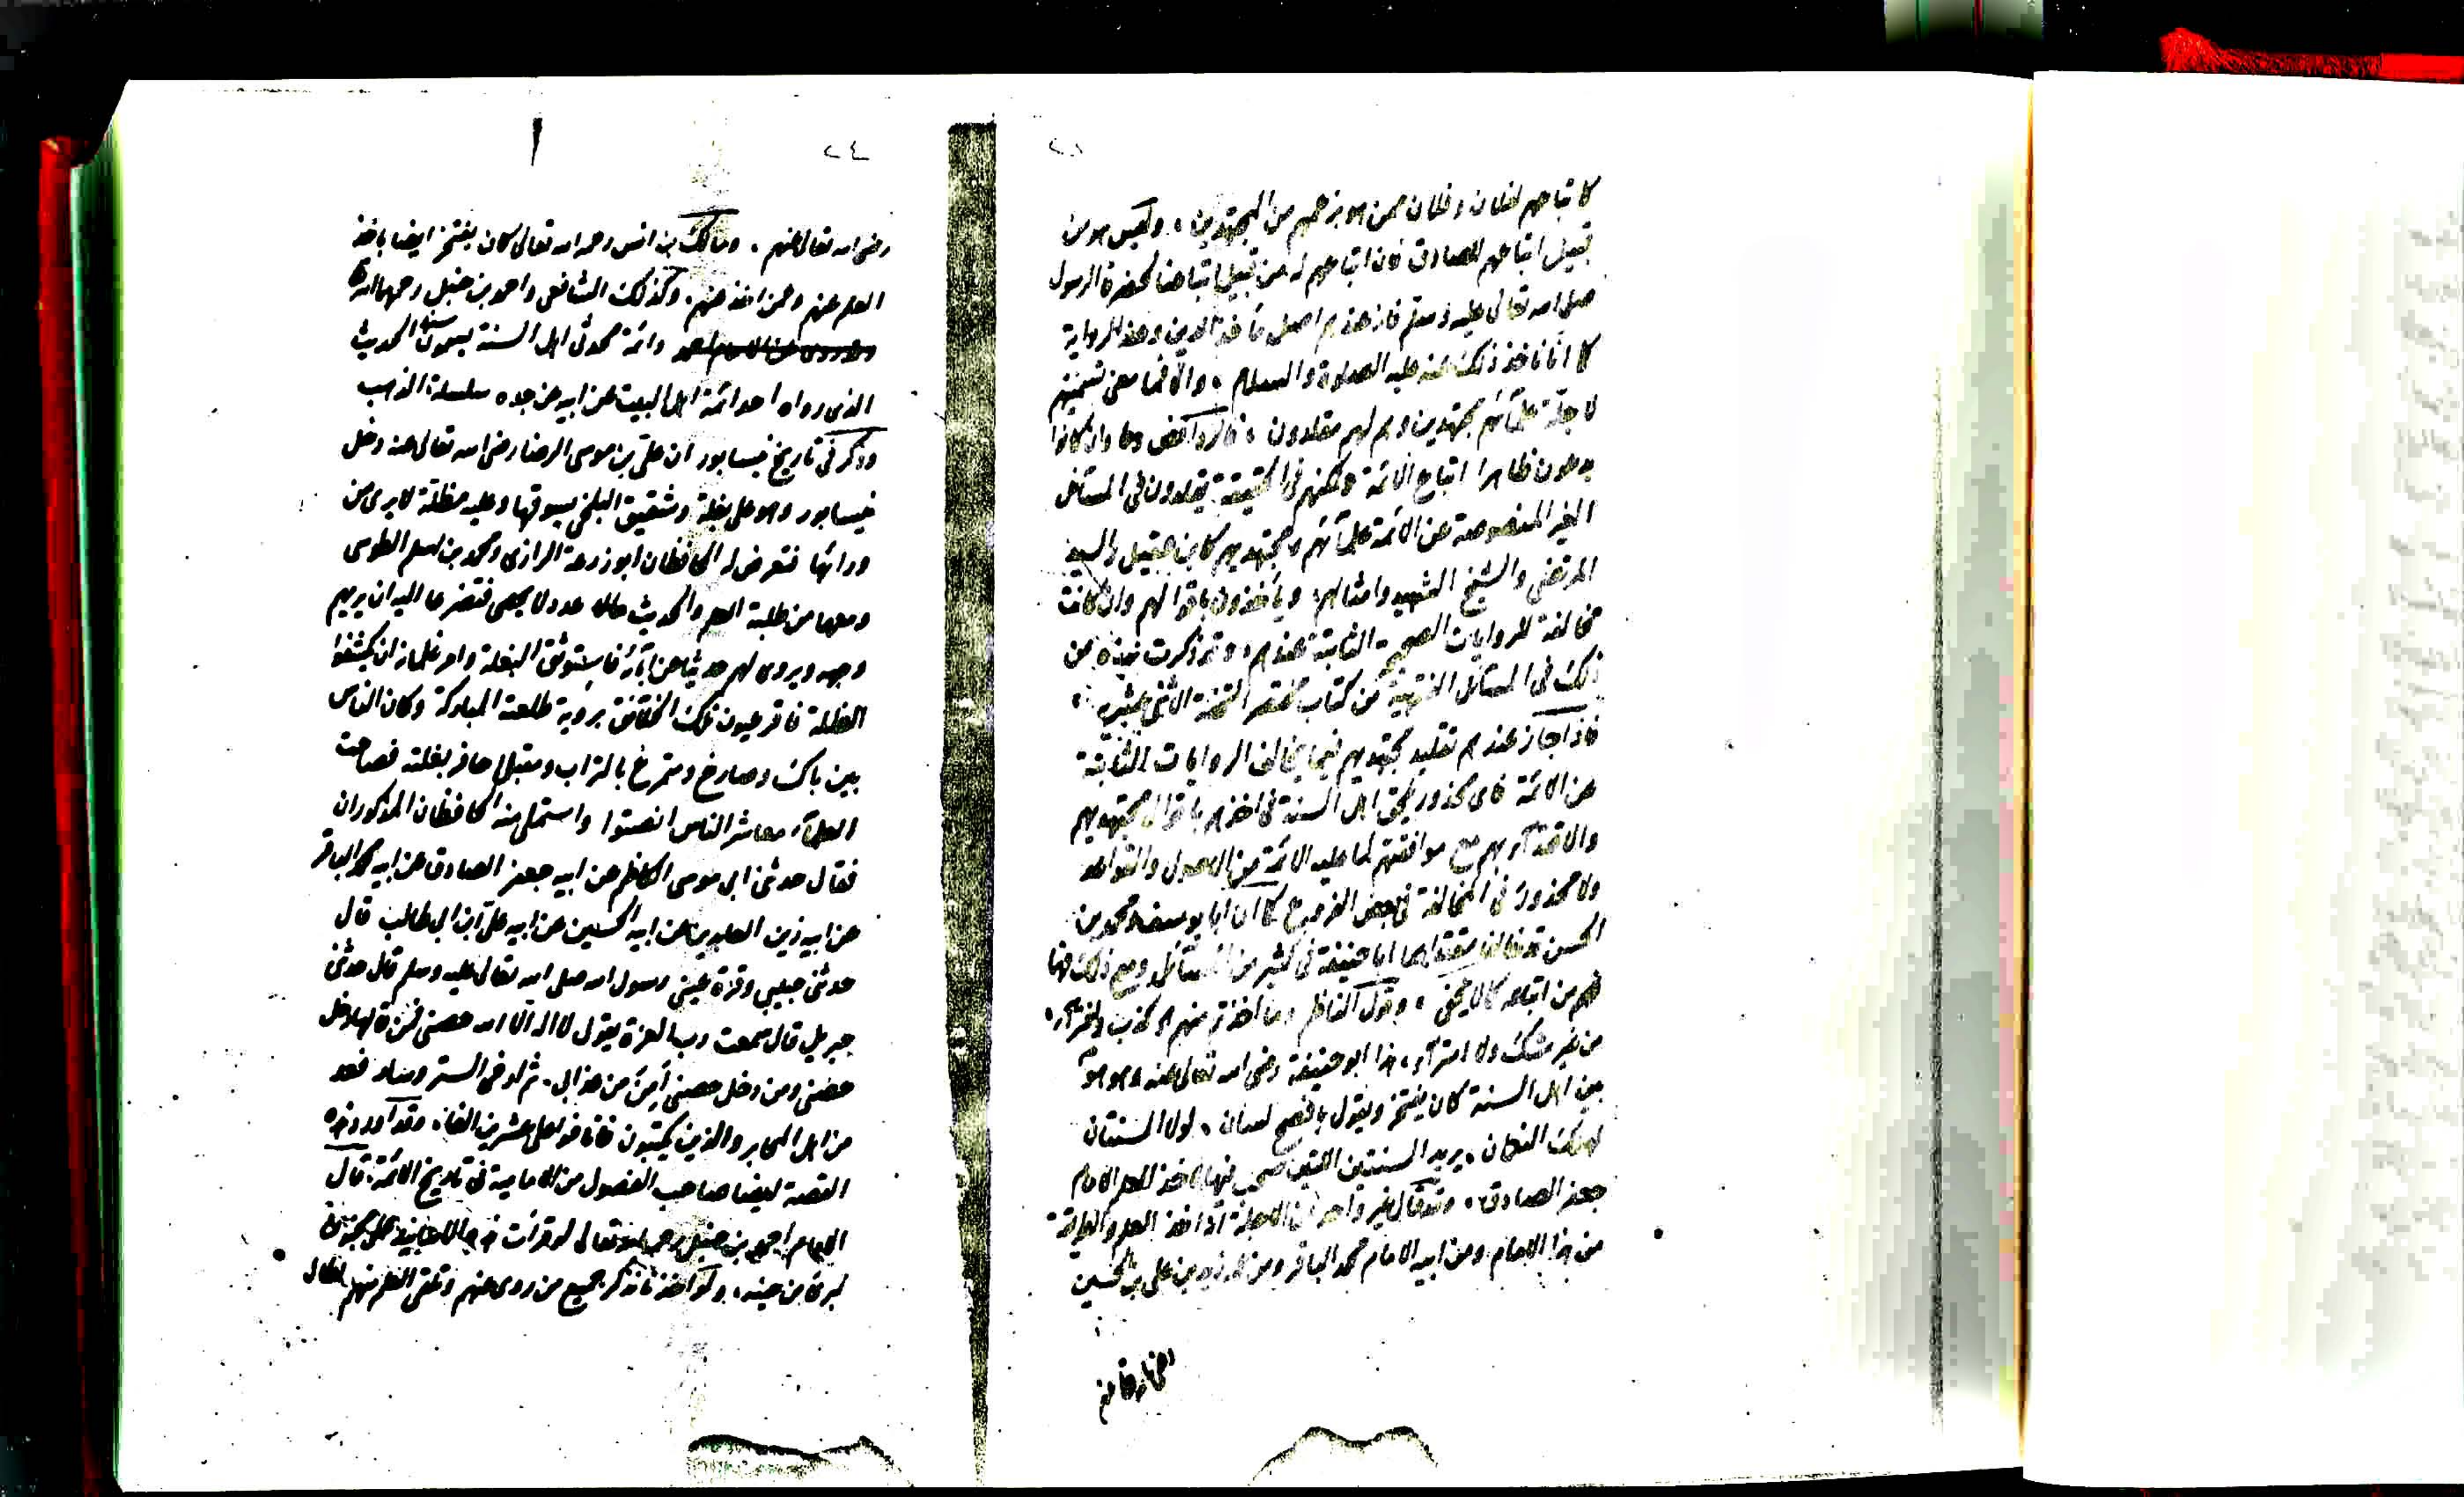 كاتباعهم لفلان وفلان ممن هو بزعمهم من المجتهدين، وليس هو من
قبيل اتباعهم للصادق فان اتباعهم له من قبيل اتباعنا لحضرة الرسول
صلى الله تعالى عليه وسلم فانه عندهم اصل مأخذ الدين وعنه الرواية
كما انا نأخذ ذلك عنه عليه الصلاة والسلام، والا فما معنى تسميتهم
لاجلة علمائهم مجتهدين وهم لهم مقلدون، فالروافض وان كانوا
يدعون ظاهرا اتباع الائمة ولكنهم في الحقيقة يقلدون في المسائل
الغير المنصوصة عن الائمة علمائهم ومجتهديهم كابن عقيل والسيد
المرتضى والشيخ الشهيد وامثالهم، ويأخذون باقوالهم وان كانت
مخالفة للروايات الصحيحة الثابتة عندهم، وقد ذكرت نبذة من
ذلك في المسائل الفقهية من كتاب مختصر التحفة الاثني عشرية،
فاذا جاز عندهم تقليد مجتهديهم فيما يخالف الروايات الثابتة
عن الائمة فاي محذور يلحق اهل السنة في اخذهم باقوال مجتهديهم
والاقتداء بهم مع موافقتهم لما عليه الائمة من الاصول والقواعد
ولا محذور في المخالفة في بعض الفروع كما ان ابا يوسف ومحمد بن
الحسن قد خالفا مقتداهما ابا حنيفة في كثير من المسائل ومع ذلك فهما
من اتباعه كما لا يخفى، وقول الناظم وما اخذتم منهم
من غير شك ولا امتراء، هذا ابو حنيفة رضي الله تعالى عنه وهو هو
بين اهل السنة كان يفتخر ويقول بافصح لسان، لولا السنتان
لهلك النعمان، يريد السنتين اللتين صحب فيهما لاخذ العلم الامام
جعفر الصادق، وقد قال غير واحد من الاجلة انه اخذ العلم والطريقة
من هذا الامام ومن ابيه الامام محمد الباقر ومن عمه زيد بن علي بن الحسين
٢٤
رضي الله تعالى عنهم، ومالك بن انس رحمه الله تعالى كان يفتخر ايضا باخذ
العلم عنهم وعمن اخذ عنهم، وكذلك الشافعي واحمد بن حنبل رحمهما الله
وائمة محدثي اهل السنة يسمون سند الحديث
الذي رواه احد ائمة اهل البيت عن ابيه عن جده سلسلة الذهب
وذكر في تاريخ نيسابور ان علي بن موسى الرضا رضي الله تعالى عنه دخل
نيسابور وهو على بغلة وشقيق البلخي يسوقها وعليه مظلة لا يرى من
ورائها فتعرض له الحافظان ابو زرعة الرازي ومحمد بن اسلم الطوسي
ومعهما من طلبة العلم والحديث مالا عدد لا يحصى فتضرعا اليه ان يريهم
وجهه ويروي لهم حديثا عن آبائه فاستوقف البغلة وامر غلمانه ان يكشفوا
المظلة فاقر عيون تلك الخلائق برؤية طلعته المباركة وكان الناس
بين باك وصارخ ومتمرغ بالتراب ومقبل حافر بغلته فصاحت
العلماء معاشر الناس انصتوا واستملى منه الحافظان المذكوران
فقال حدثني ابي موسى الكاظم عن ابيه جعفر الصادق عن ابيه محمد الباقر
عن ابيه زين العابدين عن ابيه الحسين عن ابيه علي ابن ابي طالب قال
حدثني حبيبي وقرة عيني رسول الله صلى الله تعالى عليه وسلم قال حدثني
جبريل قال سمعت رب العزة يقول لا اله الا الله حصني فمن قالها دخل
حصني ومن دخل حصني أمن من عذابي، ثم ارخى الستر وسار فعد
من اهل المحابر والذين يكتبون فانافوا على عشرين الفا، وقد اورد هذه
القصة ايضا صاحب الفصول من الامامية في تاريخ الائمة، قال
الامام احمد بن حنبل رحمه الله تعالى لو قرأت هذا الاسناد على مجنون
لبرئ من جنه، ولو اخذنا نذكر جميع من روى عنهم وتلقى العلم منهم لطال